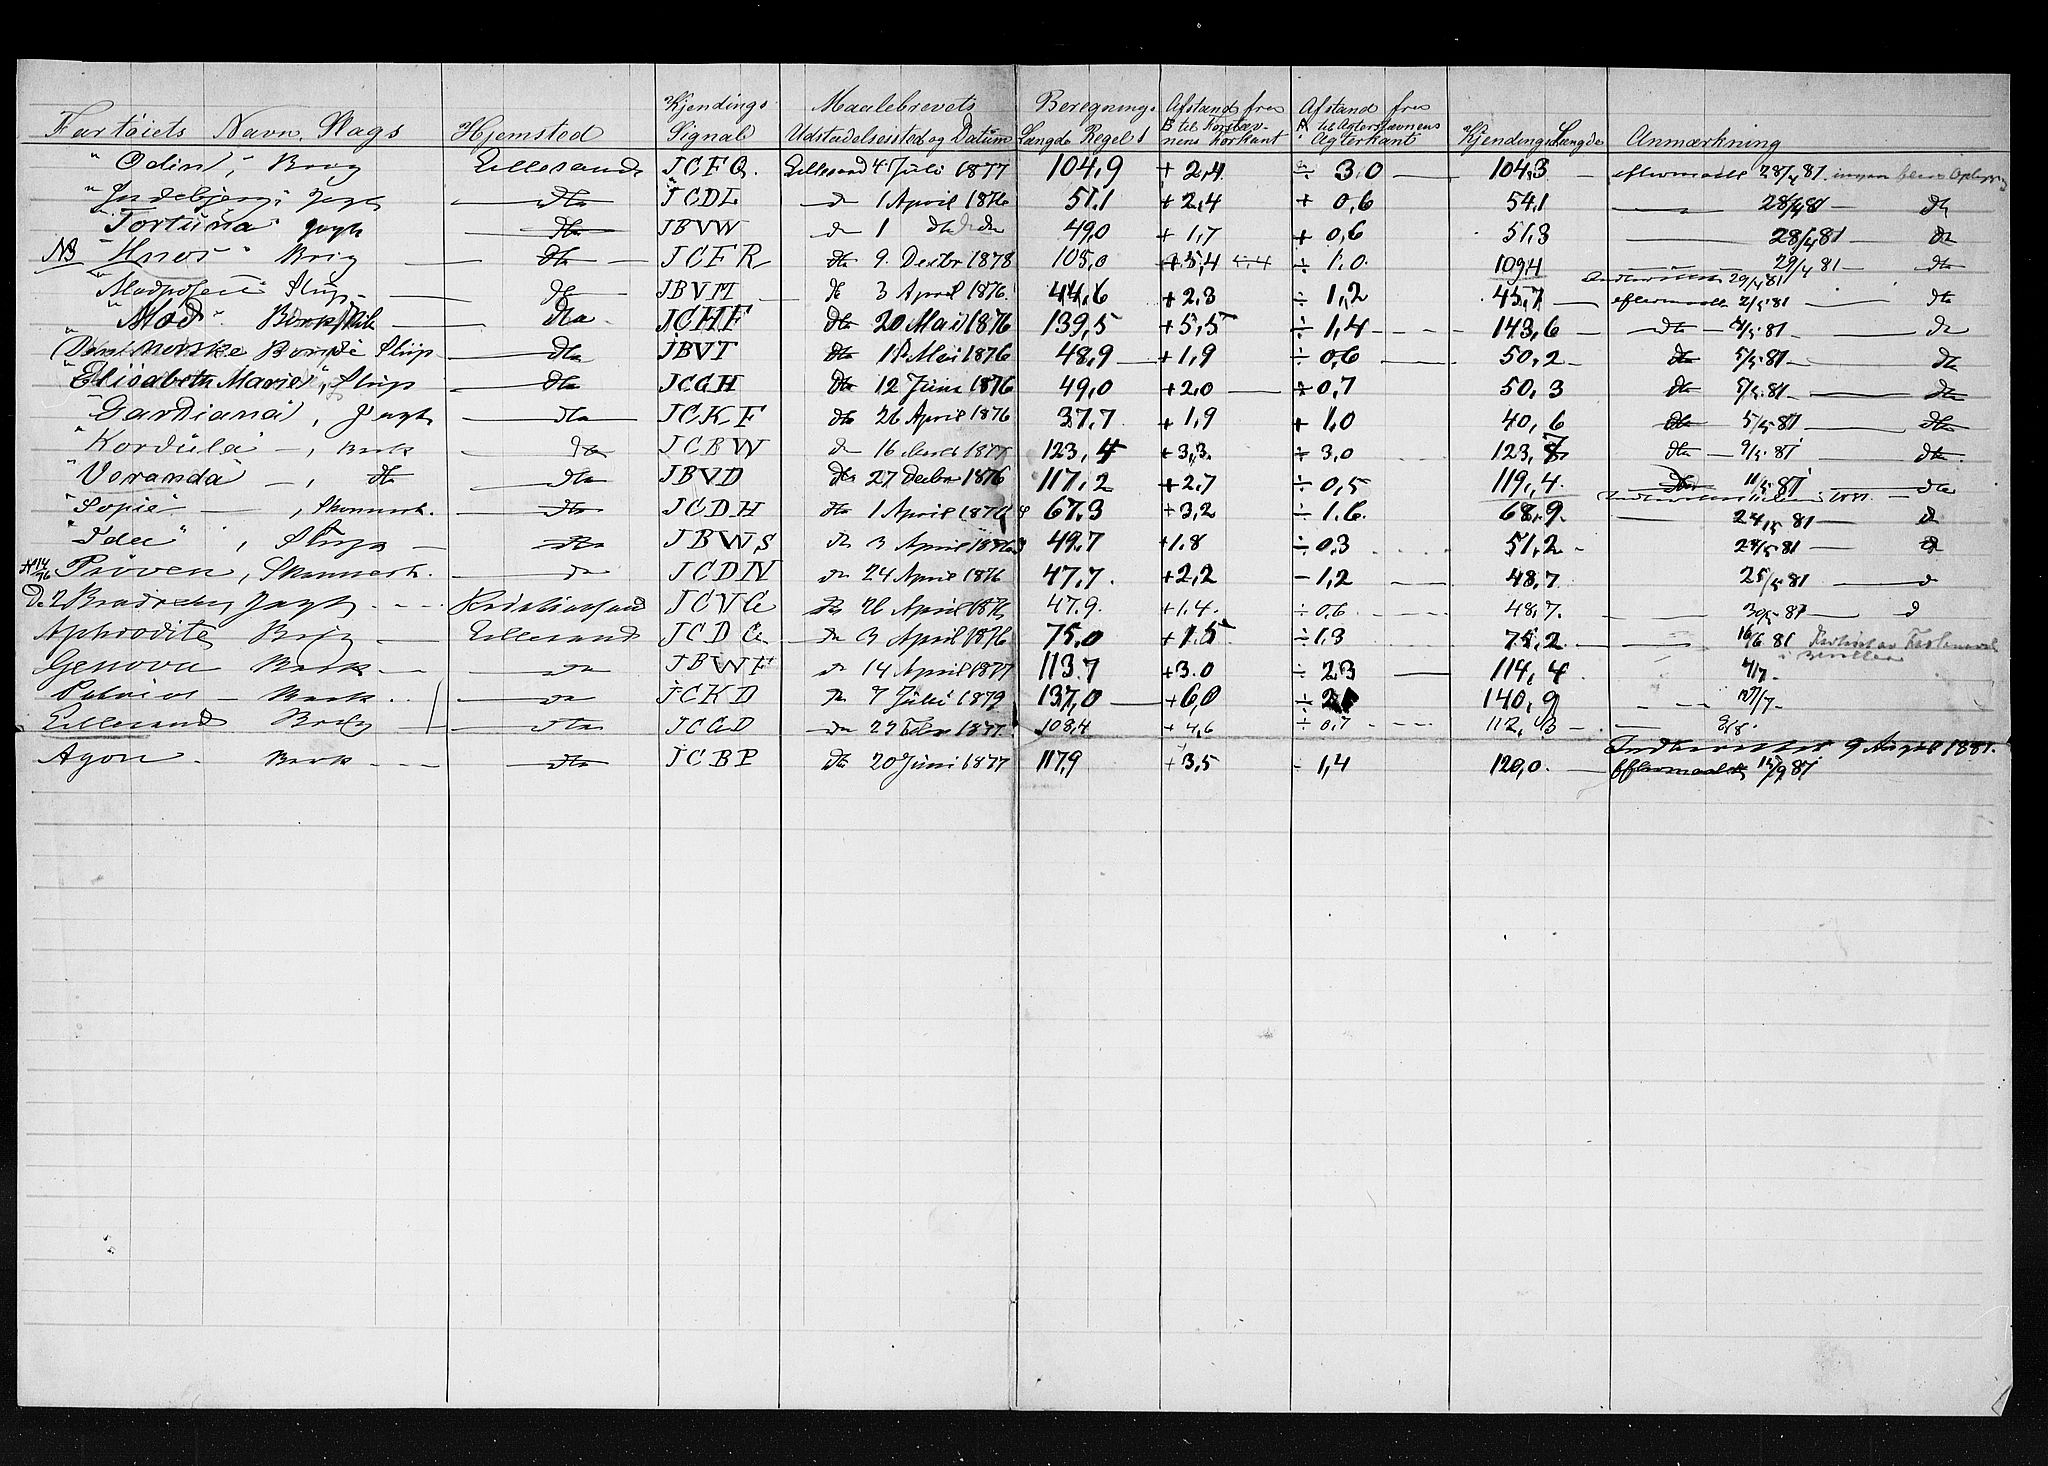 Fartøiets Navn. Slags Hjemsted Kjendings Signal Maalebrevets Udstædelsessted og Datum Beregnings Længde Regel 1 Afstand fra B til Forstævnens Forkant Afstand fra A til Agterstævnens Agterkant Kjendings Længde Anmærkning
"Odin", Brig Lillesand JCFQ. Lillesand 4 Juli 1877 104,9 + 2,4 ÷ 3,0 104,3 eftermaalt 28/4 81 ingen flere
Jagt dto JCDL do 1 April 1876 51,1 + 2,4 + 0,6 54,1 28/4 81 do
"Fortuna" Jagt dto JBVW do 1 do do 49,0 + 1,7 + 0,6 51,3 28/4 81 do
NB Brig dto JCFR dto 9. Decbr 1878 105,0 + 5,4 5,4 ÷ 1,0 109,4 29/4 81 dto
29/4 81
Slup do JBVM do 3 April 1876. 44,6 + 2,3 ÷ 1,2 45,7 eftermaalt 2/5 81 dto
"Mod" Bark dto JCHF dto 20 Mai 1876 139,5 + 5,5 ÷ 1,4 143,6 dto 4/5 81 do
"Den Norske Bonde Slup dto JBVT dto Mai 1876 48,9 + 1,9 ÷ 0,6 50,2 dto 5/5 81 dto
"Elisabeth Marie", Slup dto JCGH dto 12 Juni 1876 49,0 + 2,0 ÷ 0,7 50,3 dto 5/5 81 dto
"Gardiana", Jagt dto JCKF dto 26 April 1876 37,7 + 1,9 + 1,0 40,6 dto 5/5 81 dto
"Kordula", Bark dto JCBW do 16 1877 123,4 + 3,3 ÷ 3,0 123,7 dto 9/5 81 dto
"Veranda", dto dto JBVD dto 27 Decbr 1876 117,2 + 2,7 ÷ 0,5 119,4 dto 11/5 81 dto
"Sopie", Skonnert. dto JCDH do 1 April 1876 67,3 + 3,2 ÷ 1.6. 68,9 24/5 81 do
"Ida", Slup dto JBWS do 3 April 1876 49,7 + 1.8 ÷ 0,3 51,2 24/5 81 do
Prøven, Skonnert. do JCDN do 24 April 1876 47,7. + 2,2 - 1,2 48,7 25/5 81 do
De 2 Brødre Jagt Kristiansand JCVG do 26 April 1876 47.9. + 1.4. ÷ 0,6 48,7. 30/5 81 d
Aphrodite Brig Lillesand JCDG do 3 April 1876 75,0 + 1.5 ÷ 1.3 75,2 16/6 81
Genova Bark do JBWF do 14 April 1877 113,7 + 3.0 ÷ 2,3 114,4 4/7.
Bark do JCKD do 7 Juli 1879 137,0 + 6,0 140,9
Lillesand Brig dto JCGD do 27 Febr 1877 108,4 + 4,6 ÷ 0,7 112,3 9/8.
9 August 1881.
Agon Bark dto JCBP dto 20 Juni 1877 117,9 + 3,5 ÷ 1,4 120,0 eftermaalt 15/9 81